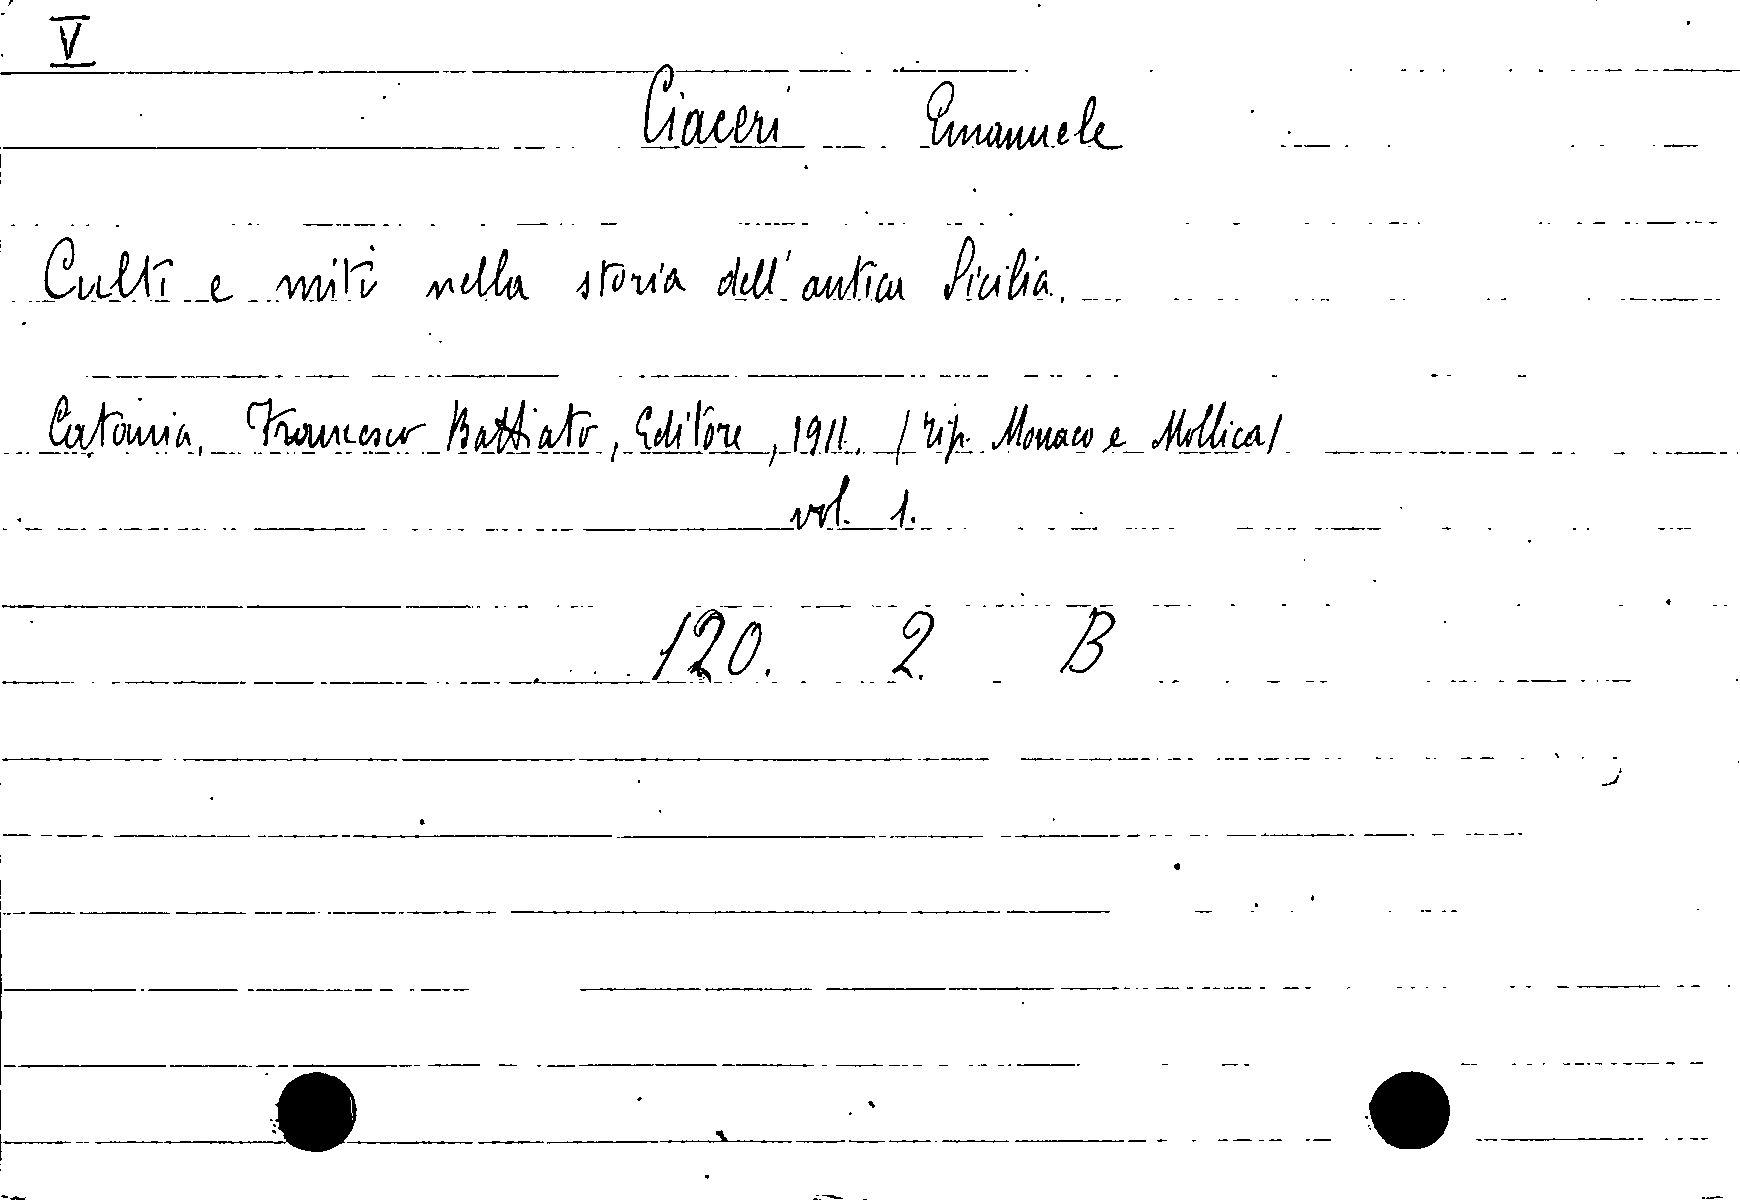 V
Ciaceri Emanuele
Culti e miti nella storia dell'antica Sicilia.
Catania, Francesco Battiato, Editore, 1911. / tip. Monaco e Mollica/
vol. 1.
120. 2. B